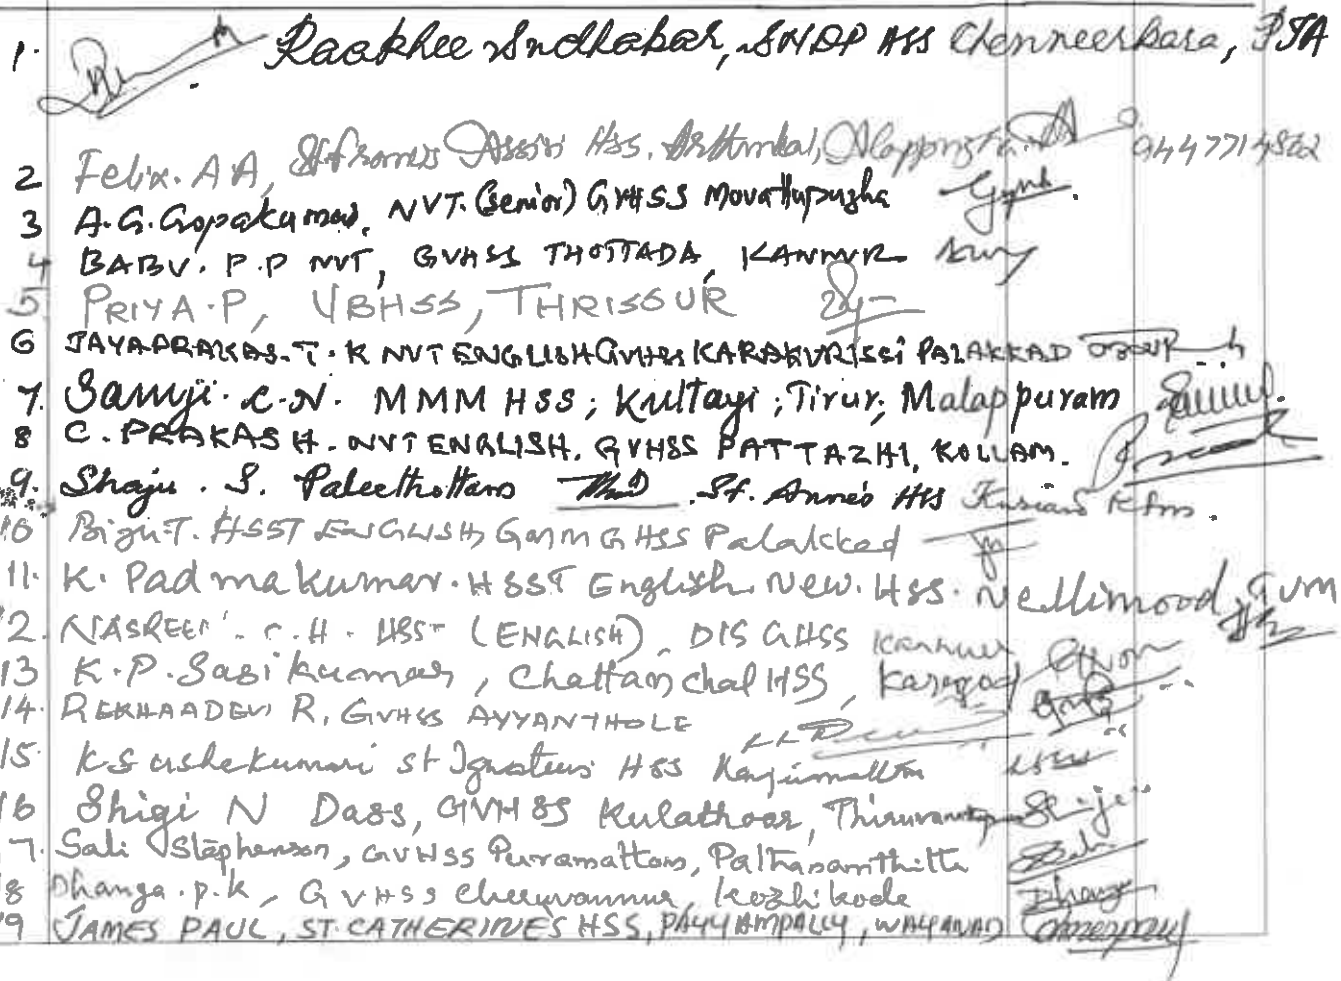 1. Raakhee Sudhakar, SNDP HSS Chenneerkara, PTA
2 Felix. A A, St. Francis Assisi HSS. Arthunkal, Alappuzha. 9447714862
3 A. G. Gopakumar, NVT. (Senior) GVHSS Movattupuzha
4 BABU. P. P NVT, GVHSS THOTTADA, KANNUR
5 PRIYA. P, VBHSS, THRISSUR
6 JAYAPRAKAS. T. K NVT ENGLISH GVHSS KARAKURISSI PALAKKAD
7. Samji. C. N. MMM HSS; Kuttayi; Tirur; Malappuram
8 C. PRAKASH. NVT ENGLISH. GVHSS PATTAZHI, KOLLAM.
9. Shaju. S. Paleethottam St. Anne's HSS Ktm.
10 Biju. T. HSST ENGLISH, GMMGHSS Palakkad
11. K. Padmakumar. HSST English. New. HSS. Nellimood, TVM
12. NASREEN. C. H. HSST (ENGLISH), DIS GHSS Kannur
13 K. P. Sasikumar, Chattanchal HSS, Kasargod
14. REKHAADEVI R, GVHSS AYYANTHOLE
15. K S ushakumari St Ignatius HSS Kanjiramattom
16 Shigi N Dass, GVHSS Kulathoor, Thiruvananthapuram
17. Sali Stephenson, GVHSS Puramattom, Pathanamthitta
18 Dhanya. p. k, GVHSS Cheruvannur, Kozhikode
19 JAMES PAUL, ST. CATHERINE'S HSS, PAYYAMPALLY, WAYANAD